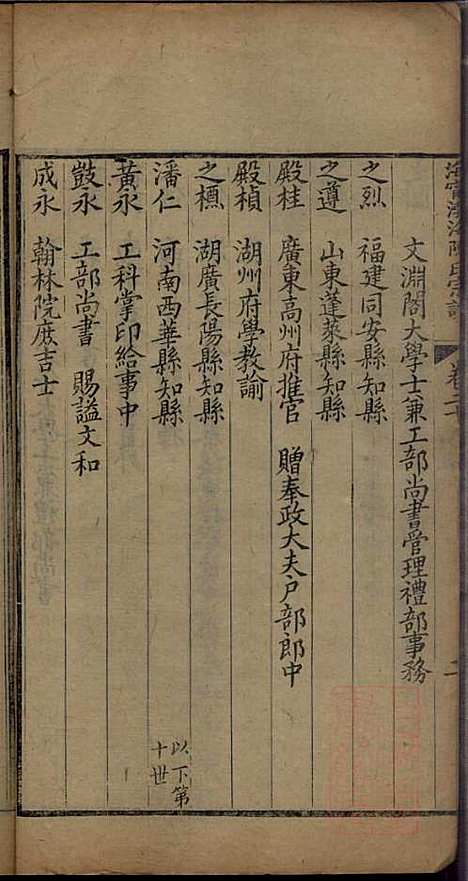 海寧渤海陳氏宗譜 卷二 二
文淵閣大學士兼工部尚書管理禮部事務
之烈 福建同安縣知縣
之遵 山東蓬萊縣知縣
殿桂 廣東高州府推官 贈奉政大夫戶部郎中
殿楨 湖州府學教諭
之標 湖廣長陽縣知縣
潘仁 河南西華縣知縣 以下第十世
黃永 工科掌印給事中
敱永 工部尚書 賜諡文和
成永 翰林院庶吉士